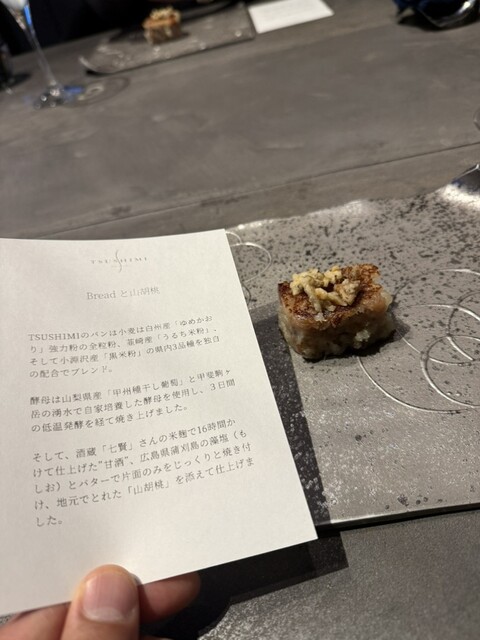 TSUSHIMI
Bread と山胡桃
TSUSHIMIのパンは小麦は白州産「ゆめかお
り」強力粉の全粒粉、韮崎産「うるち米粉」、
そして小淵沢産「黒米粉」の県内3品種を独自
の配合でブレンド。
酵母は山梨県産「甲州種干し葡萄」と甲斐駒ヶ
岳の湧水で自家培養した酵母を使用し、3日間
の低温発酵を経て焼き上げました。
そして、酒蔵「七賢」さんの米麹で16時間か
けて仕上げた"甘酒"、広島県蒲刈島の藻塩（も
しお）とバターで片面のみをじっくりと焼き付
け、地元でとれた「山胡桃」を添えて仕上げま
した。